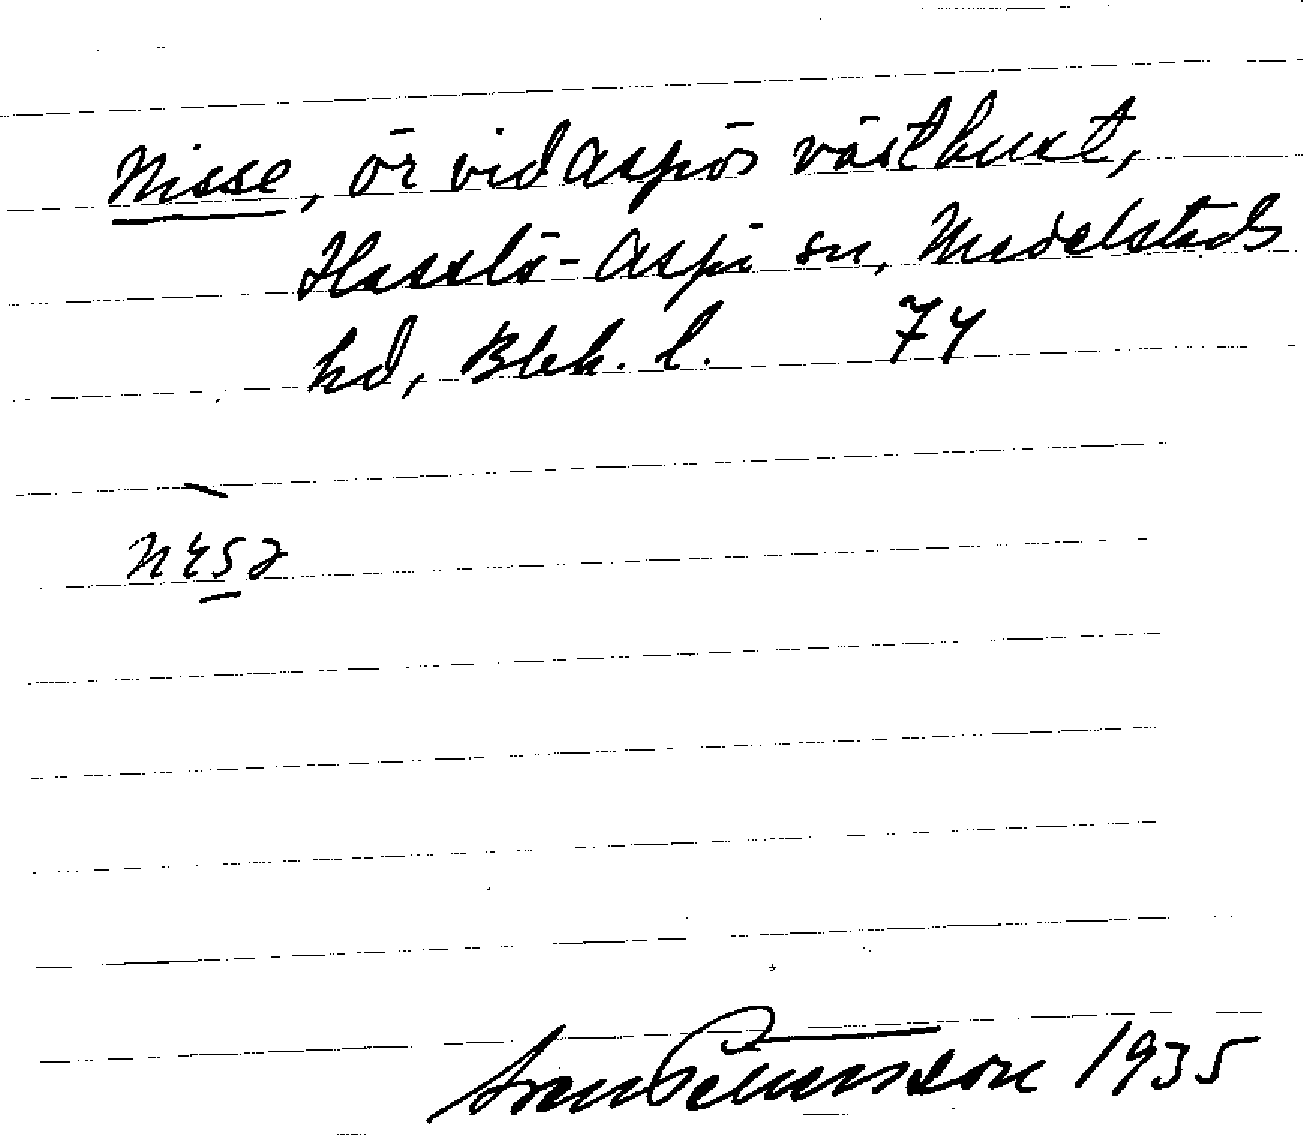 Nisse, ör vid Aspös västkust,
Hasslö-Aspö sn, Medelstads
hd, Blek. l. 74
Sven Pettersson 1935